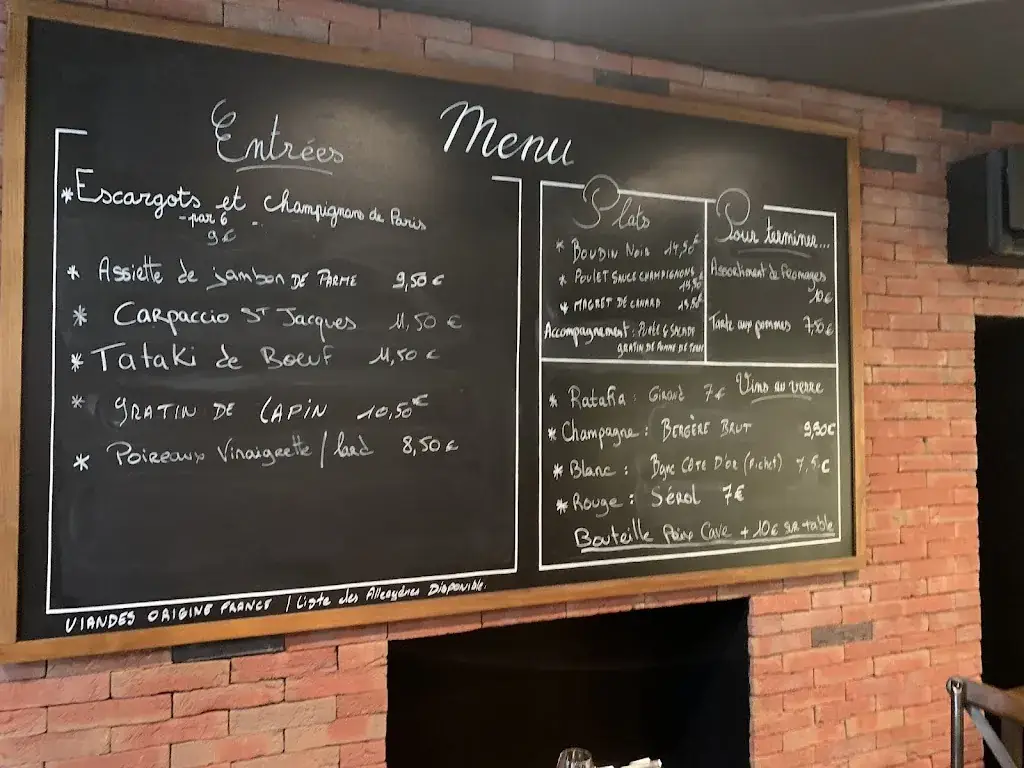 Menu
Entrées
*Escargots et champignons de Paris
-par 6-
9€
* Assiette de jambon DE PARME 9,50€
* Carpaccio ST Jacques 11,50€
* Tataki de Boeuf 11,50€
* GRATIN DE LAPIN 10,50€
* Poireaux Vinaigrette / lard 8,50€
Plats
* BOUDIN NOIR 14,50€
* POULET SAUCE CHAMPIGNONS
* MAGRET DE CANARD
Accompagnement: & SALADE
GRATIN DE POMME DE TERRE
Pour terminer...
Assortiment de Fromages
10€
Tarte aux pommes 7,50€
Vins au verre
* Ratafia: GIRAUD 7€
* Champagne: BERGÈRE BRUT 9,90€
* Blanc: CÔTE D'OR 
* Rouge: SÉROL 7€
Bouteille Prix Cave + 10€ sur table
VIANDES ORIGINE FRANCE / Liste des Allergènes Disponible.